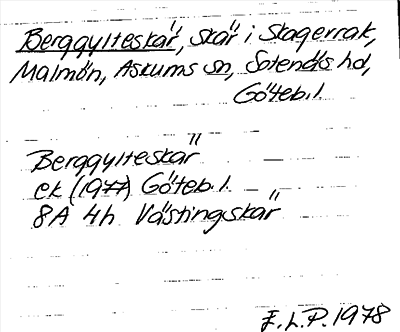 Berggylteskär, skär i Skagerrak,
Malmön, Askums sn, Sotenäs hd,
Göteb.l.
Berggylteskär
ek (1977) Göteb.l.
8A 4h Västingskär
E.L.P. 1978